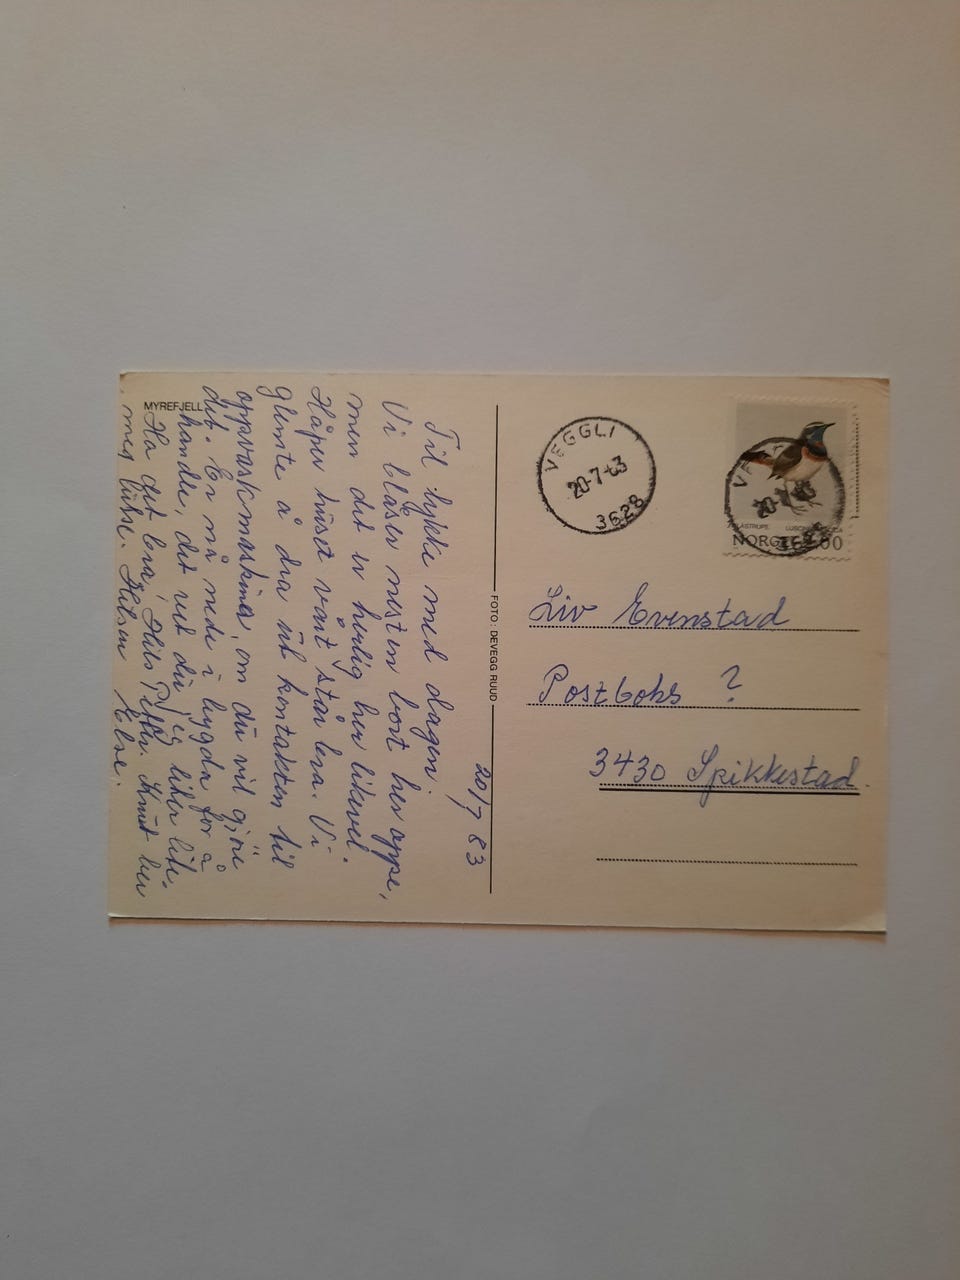 MYREFJELL
20/7 83
Til lykke med dagen.
Vi blåser nesten bort her oppe,
men det er herlig her likevel.
Håper huset vårt står bra. Vi
glemte å dra ut kontakten til
oppvaskmaskina, om du vil gjøre
det. Er nå nede i bygda for å
handle, det vet du jeg liker litt.
Ha det bra, Hils Petter. Knut ber
meg hilse. Hilsen Else.
FOTO: DEVEGG RUUD
VEGGLI
20-7-83
3628
BLÅSTRUPE
NORGE
20-7-83
3628
Liv Evenstad
Postboks ?
3430 Spikkestad.